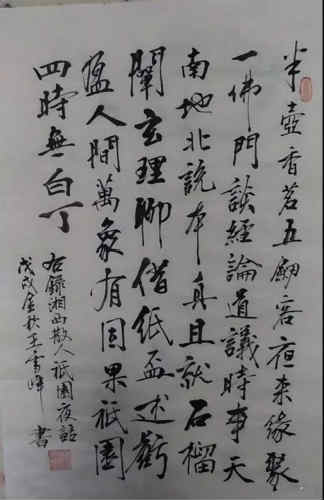 半壺香茗五湖客夜來緣聚
一佛門談經論道議時事天
南地北說本真且就石榴
闡玄理聊借紙盃述虧
盈人間萬象有因果祇園
四時無白丁
右錄湘西散人祇園夜話
戊戌金秋王雪峰書